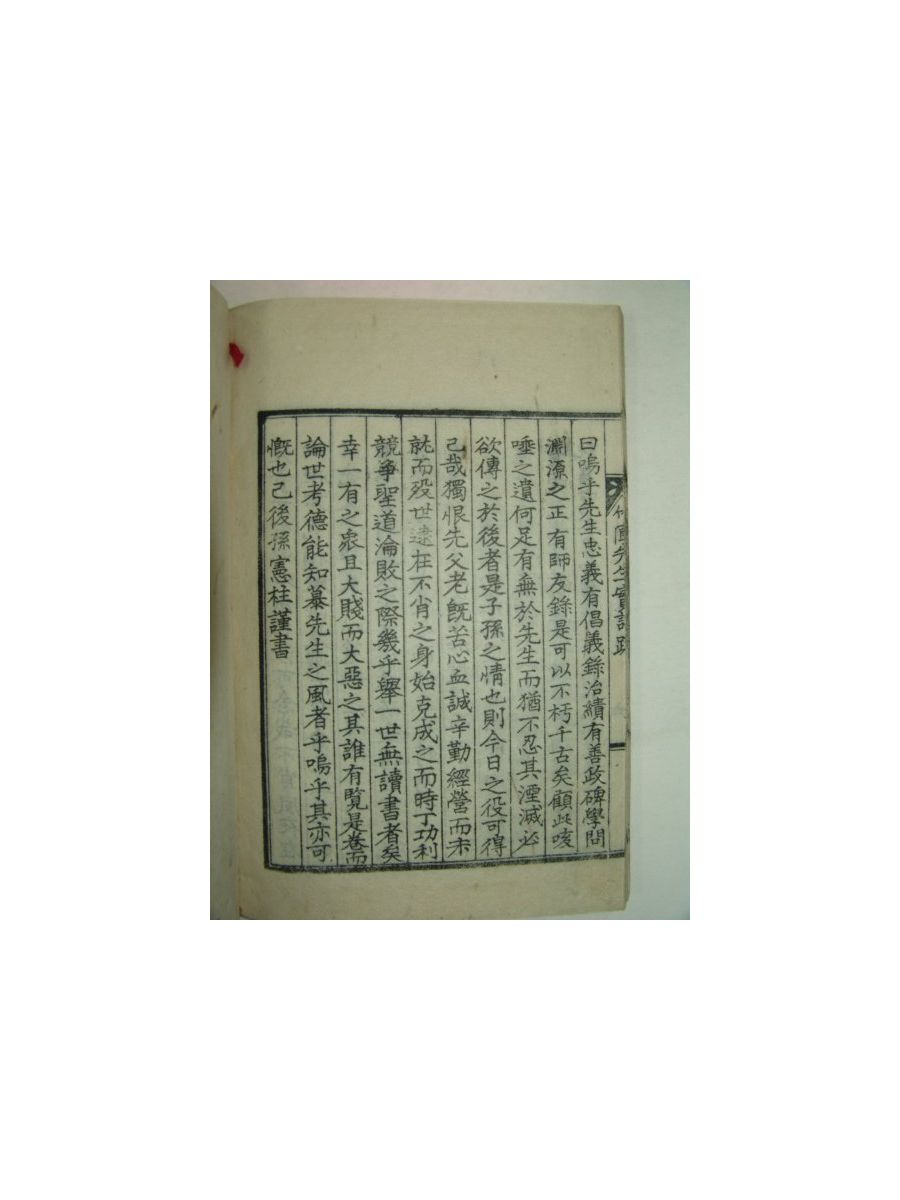 曰嗚乎先生忠義有倡義錄治績有善政碑學問
淵源之正有師友錄是可以不朽千古矣顧此咳
唾之遺何足有無於先生而猶不忍其湮滅必
欲傳之於後者是子孫之情也則今日之役可得
已哉獨恨先父老旣苦心血誠辛勤經營而未
就而歿世逮在不肖之身始克成之而時丁功利
競爭聖道淪敗之際幾乎擧一世無讀書者矣
幸一有之衆且大賤而大惡之其誰有覽是卷而
論世考德能知慕先生之風者乎嗚乎其亦可
慨也已後孫憲柱謹書
先生實記跋